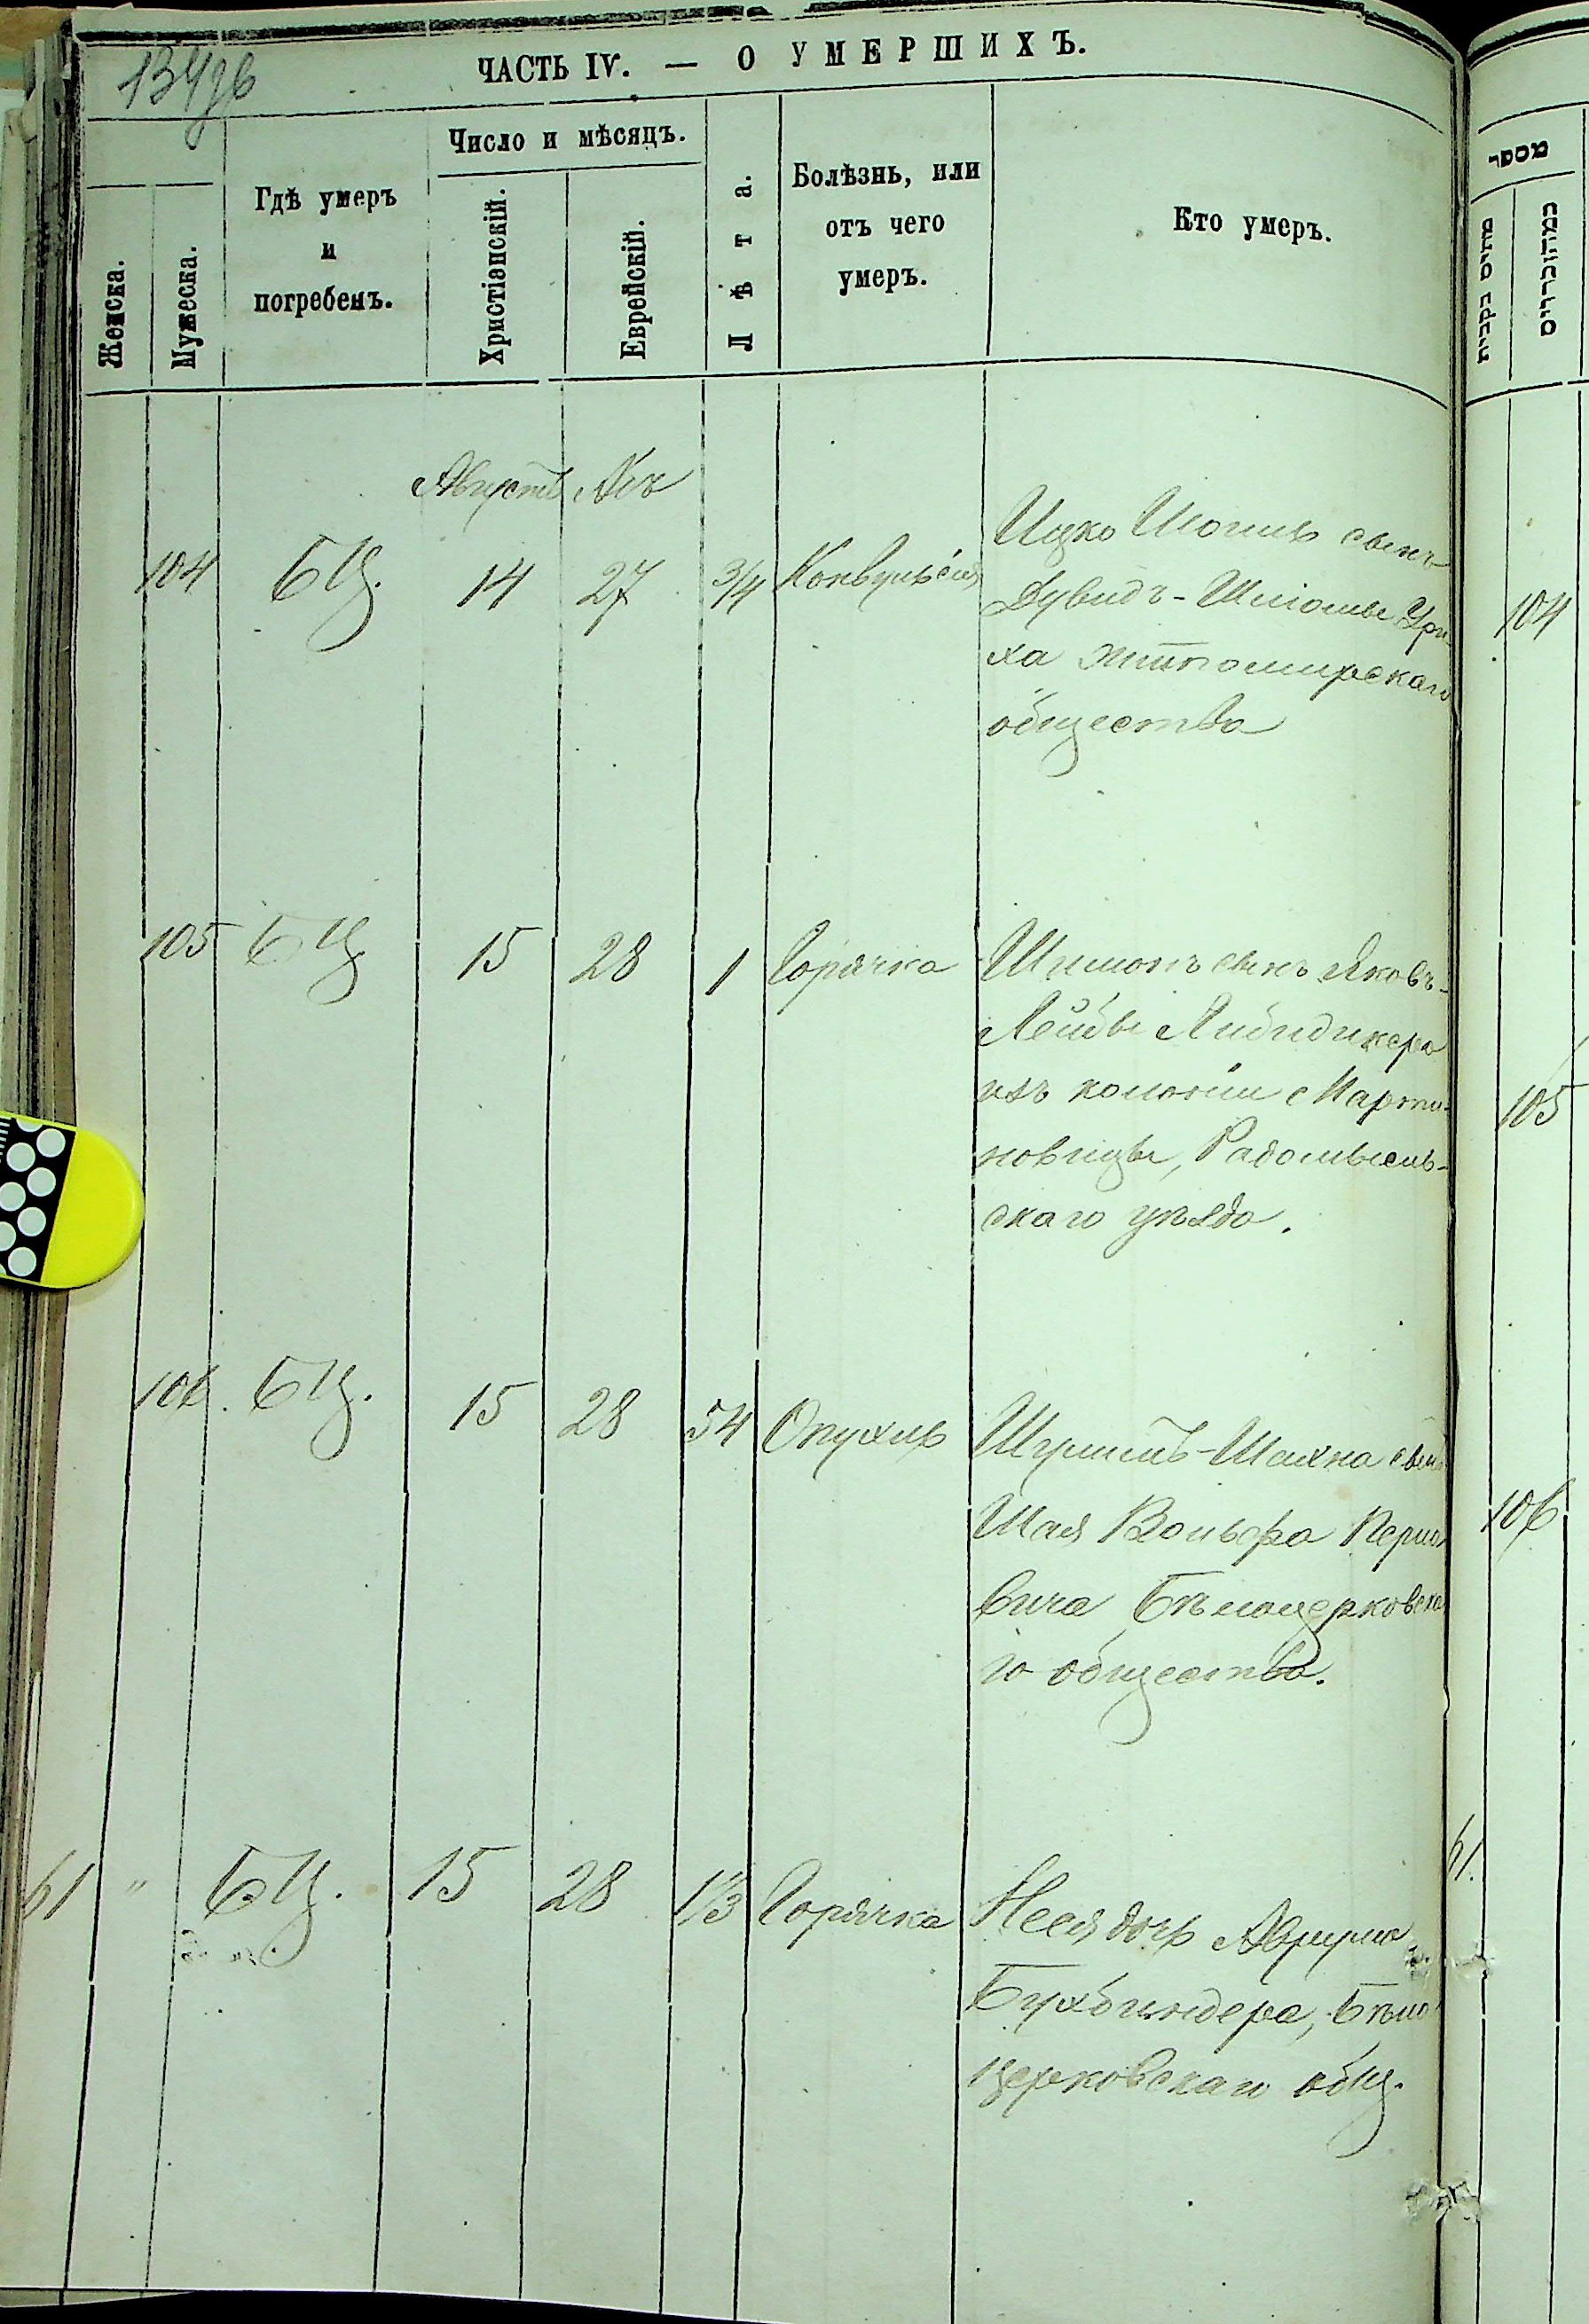 134
ЧАСТЬ IV. — О УМЕРШИХЪ.
Женска.
Мужеска.
Гдѣ умеръ
и
погребенъ.
Число и мѣсяцъ.
Христіанскій.
Еврейскій.
Лѣта.
Болѣзнь, или
отъ чего
умеръ.
Кто умеръ.
מספר
מתים נקבות
Августъ Абъ
104 БЦ. 14 27 3/4 Конвульсія
Ицко Іосиль сынъ
Дувидъ-Шлiомы
ха житомирскаго
общества
105 БЦ 15 28 1 Горячка
Шимонъ сынъ Яковъ-
Лейбы Либидикера
изъ колоніи Марти-
новицы, Радомысль-
скаго уѣзда.
106. БЦ. 15 28 54 Опухль
Шахна сынъ
Шая Вольфа
вича Бѣлоцерковска
го общества.
61 " БЦ. 15 28 1 1/3 Горячка
Неся дочь Аврума
Бухбиндера, Бѣло
церковскаго общ.
104
105
106
61.